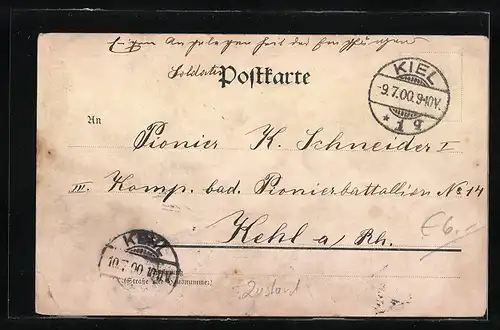 Eigene Angelegenheit des Empfängers
Soldaten Postkarte
KIEL
9.7.00.9-10V.
* 1 q
An
Pionier K. Schneider I
III. Komp. bad. Pionierbattallion No 14
Kehl a Rh.
KEHL
10.7.00.10-11V.
(Straße und Hausnummer)
E6.-
Zustand